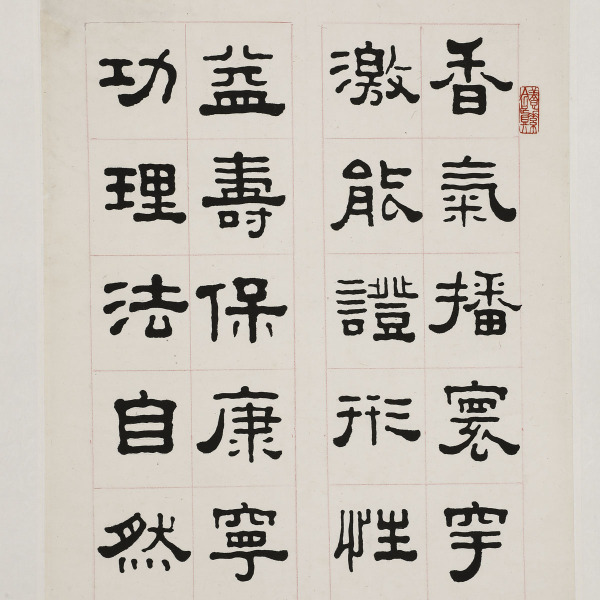 香氣播寰宇
激能證形性
益壽保康寧
功理法自然